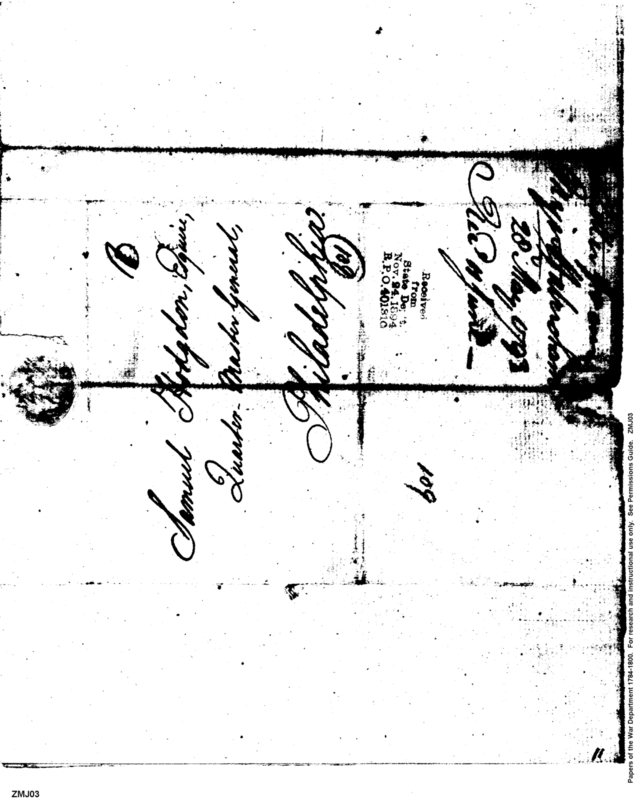 B
Samuel Hodgdon, Esquire,
Quarter-Master General,
Philadelphia.
109
Received
from
State De't.
Nov. 24, 1894
R.P.O. 401810
28 May 1793
109
11
Papers of the War Department 1784-1800. For research and instructional use only. See Permissions Guide. ZMJ03
ZMJ03